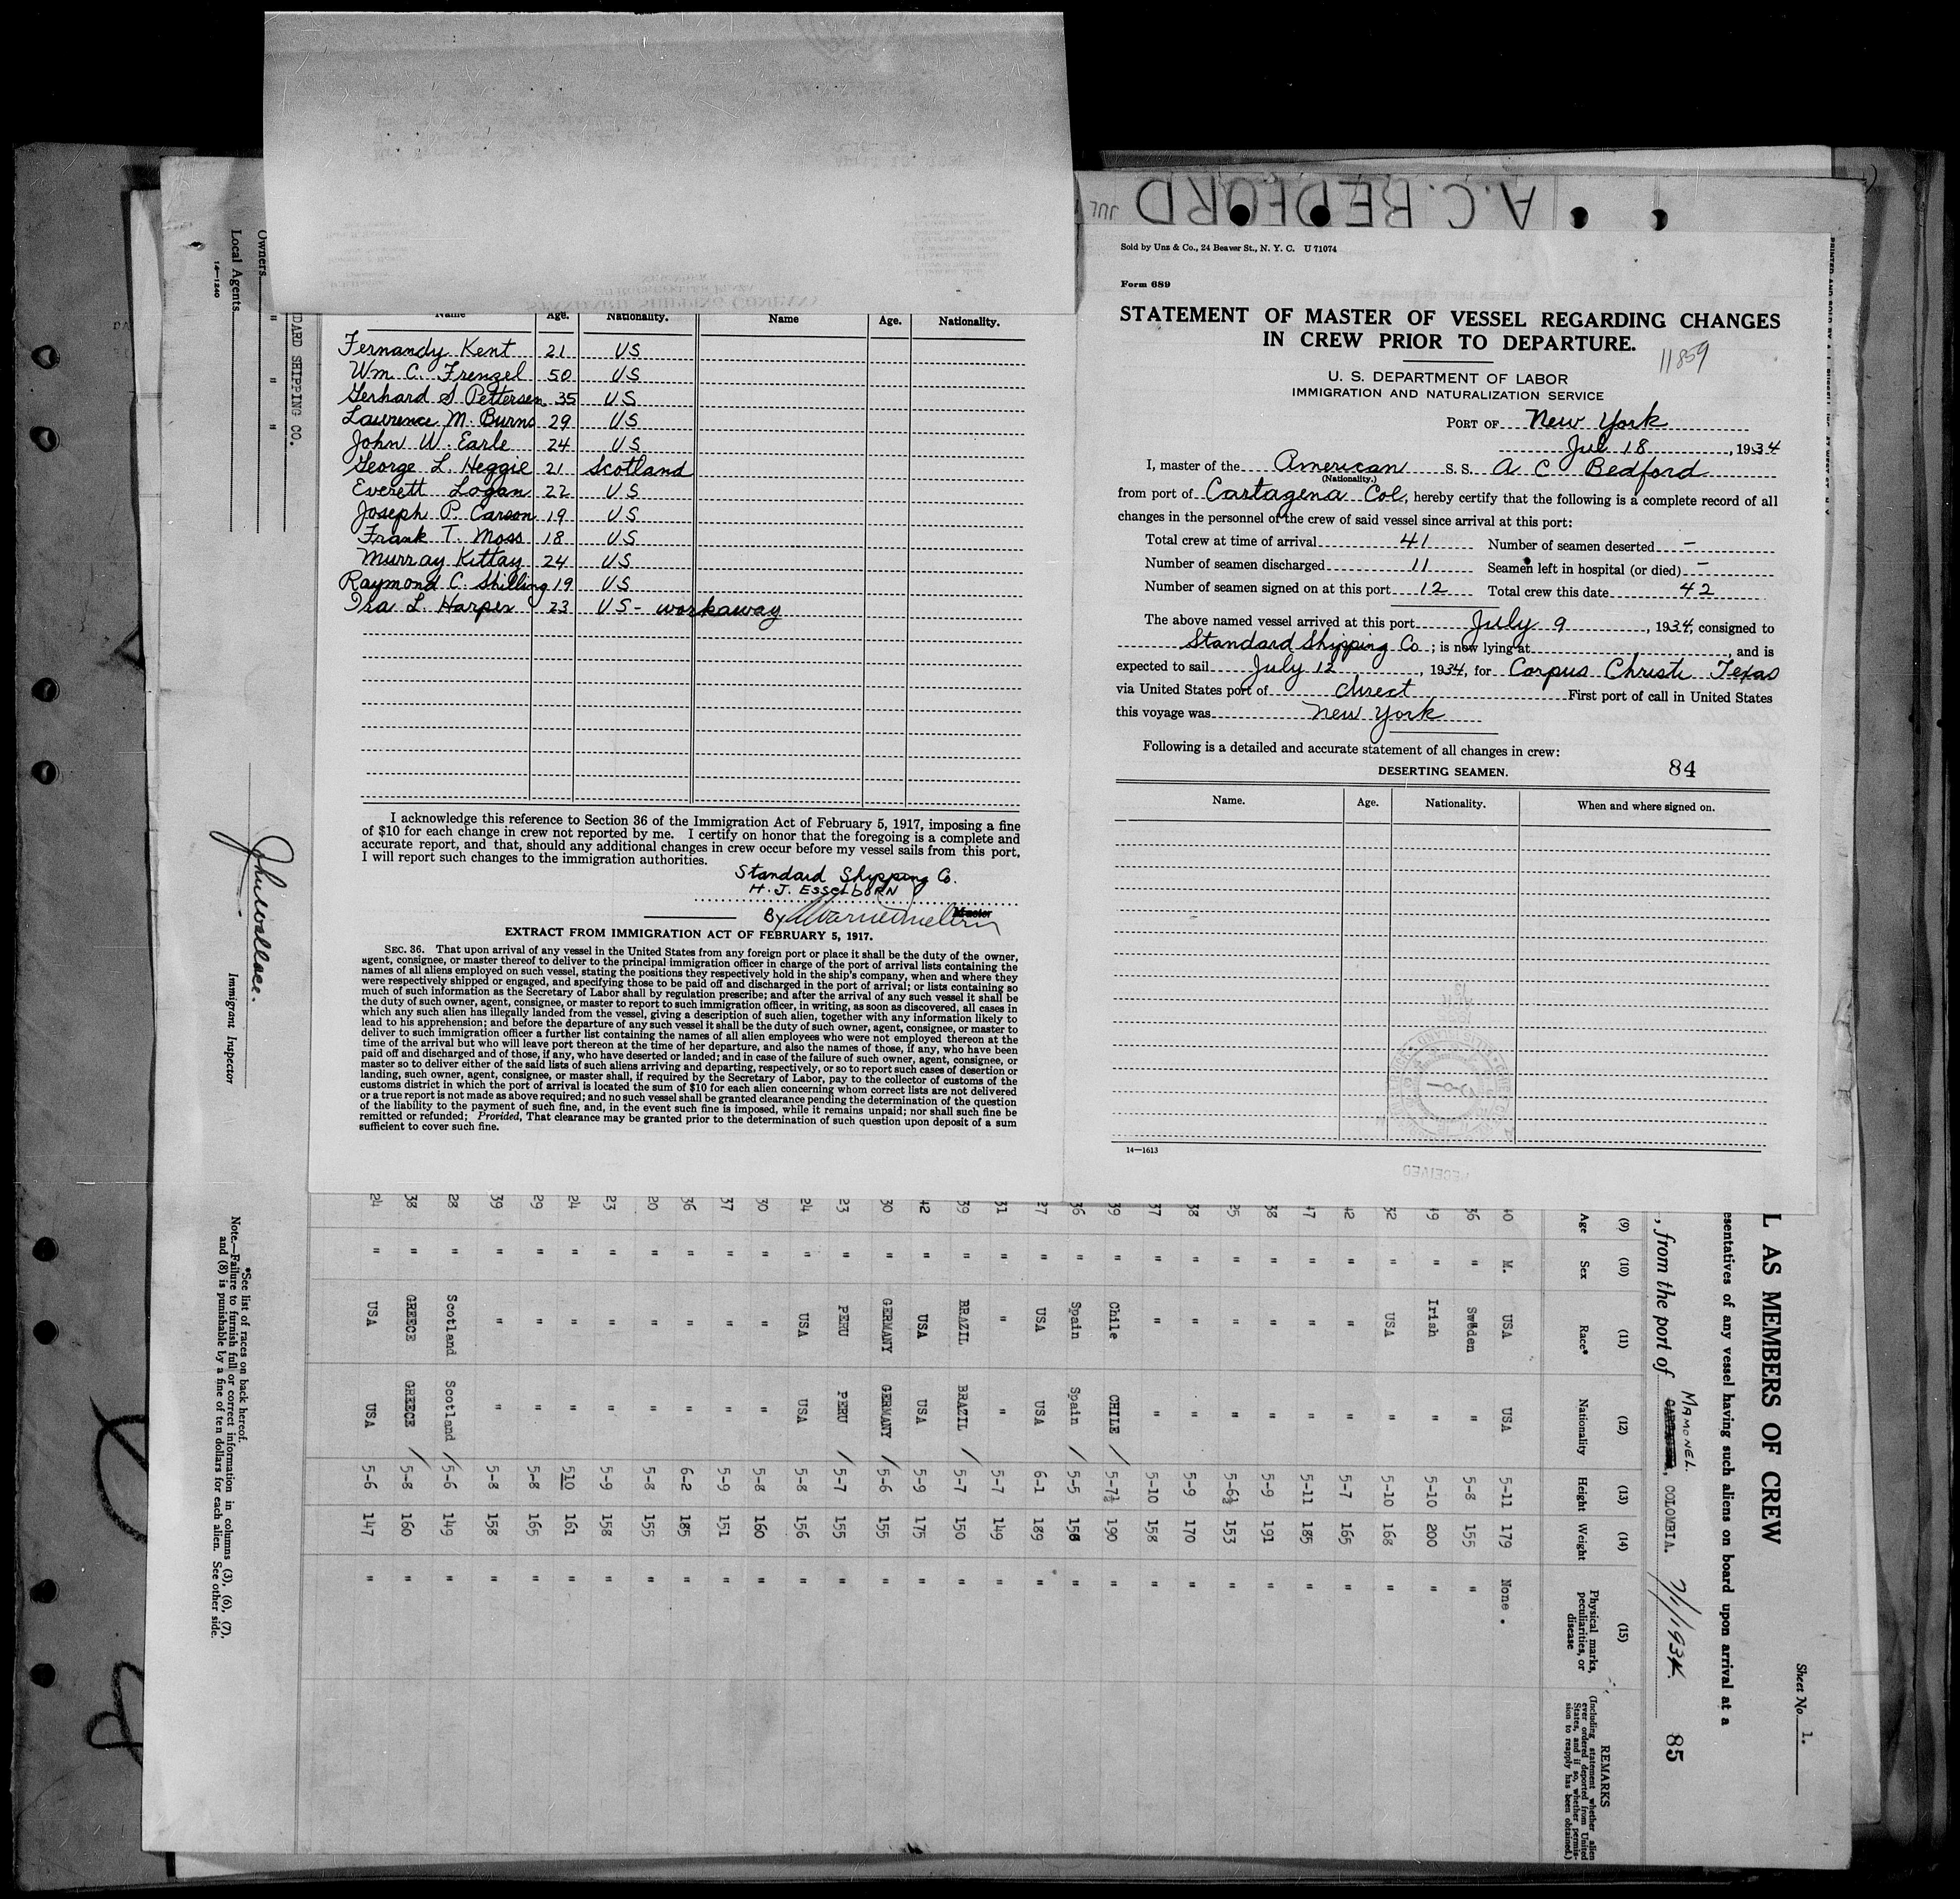 A.C. BEDFORD
JUL
Sold by Unz & Co., 24 Beaver St., N. Y. C. U 71074
Form 689
STATEMENT OF MASTER OF VESSEL REGARDING CHANGES
IN CREW PRIOR TO DEPARTURE.
11859
U. S. DEPARTMENT OF LABOR
IMMIGRATION AND NATURALIZATION SERVICE
PORT OF New York
Jul 18, 1934
I, master of the American S. S. A C Bedford
(Nationality.)
from port of Cartagena Col, hereby certify that the following is a complete record of all
changes in the personnel of the crew of said vessel since arrival at this port:
Total crew at time of arrival 41 Number of seamen deserted –
Number of seamen discharged 11 Seamen left in hospital (or died) –
Number of seamen signed on at this port 12 Total crew this date 42
The above named vessel arrived at this port July 9, 1934, consigned to
Standard Shipping Co; is now lying at , and is
expected to sail July 12, 1934, for Corpus Christi Texas
via United States port of direct First port of call in United States
this voyage was New York
Following is a detailed and accurate statement of all changes in crew:
DESERTING SEAMEN.
84
Name. Age. Nationality. When and where signed on.
14—1613
RECEIVED
Name Age. Nationality. Name Age. Nationality.
Fernandy Kent 21 US
Wm C. Frenzel 50 US
Gerhard S Pettersen 35 US
Lawrence M. Burns 29 US
John W. Earle 24 US
George L. Heggie 21 Scotland
Everett Logan 22 US
Joseph P. Carson 19 US
Frank T. Moss 18 US
Murray Kittay 24 US
Raymond C. Shilling 19 US
Ira L. Harper 23 US - workaway
I acknowledge this reference to Section 36 of the Immigration Act of February 5, 1917, imposing a fine
of $10 for each change in crew not reported by me. I certify on honor that the foregoing is a complete and
accurate report, and that, should any additional changes in crew occur before my vessel sails from this port,
I will report such changes to the immigration authorities.
Standard Shipping Co.
H. J. ESSELBORN
By
Master
EXTRACT FROM IMMIGRATION ACT OF FEBRUARY 5, 1917.
SEC. 36. That upon arrival of any vessel in the United States from any foreign port or place it shall be the duty of the owner,
agent, consignee, or master thereof to deliver to the principal immigration officer in charge of the port of arrival lists containing the
names of all aliens employed on such vessel, stating the positions they respectively hold in the ship's company, when and where they
were respectively shipped or engaged, and specifying those to be paid off and discharged in the port of arrival; or lists containing so
much of such information as the Secretary of Labor shall by regulation prescribe; and after the arrival of any such vessel it shall be
the duty of such owner, agent, consignee, or master to report to such immigration officer, in writing, as soon as discovered, all cases in
which any such alien has illegally landed from the vessel, giving a description of such alien, together with any information likely to
lead to his apprehension; and before the departure of any such vessel it shall be the duty of such owner, agent, consignee, or master to
deliver to such immigration officer a further list containing the names of all alien employees who were not employed thereon at the
time of the arrival but who will leave port thereon at the time of her departure, and also the names of those, if any, who have been
paid off and discharged and of those, if any, who have deserted or landed; and in case of the failure of such owner, agent, consignee, or
master so to deliver either of the said lists of such aliens arriving and departing, respectively, or so to report such cases of desertion or
landing, such owner, agent, consignee, or master shall, if required by the Secretary of Labor, pay to the collector of customs of the
customs district in which the port of arrival is located the sum of $10 for each alien concerning whom correct lists are not delivered
or a true report is not made as above required; and no such vessel shall be granted clearance pending the determination of the question
of the liability to the payment of such fine, and, in the event such fine is imposed, while it remains unpaid; nor shall such fine be
remitted or refunded; Provided, That clearance may be granted prior to the determination of such question upon deposit of a sum
sufficient to cover such fine.
Sheet No. 1.
L AS MEMBERS OF CREW
esentatives of any vessel having such aliens on board upon arrival at a
, from the port of MAMONEL. , COLOMBIA. 7/1/1934. 85
(9) (10) (11) (12) (13) (14) (15)
Age Sex Race* Nationality Height Weight Physical marks, peculiarities, or disease
REMARKS
(Including statement whether alien
ever ordered deported from United
States, and if so, whether permis-
sion to reapply has been obtained.)
40 M. USA USA 5-11 179 None .
36 " Swëden " 5-8 155 "
49 " Irish " 5-10 200 "
32 " USA " 5-10 168 "
42 " " " 5-7 165 "
47 " " " 5-11 185 "
38 " " " 5-9 191 "
25 " " " 5-6½ 153 "
38 " " " 5-9 170 "
37 " " " 5-10 158 "
39 " Chile CHILE / 5-7½ 190 "
36 " Spain Spain / 5-5 156 "
27 " USA USA 6-1 189 "
31 " " " 5-7 149 "
39 " BRAZIL BRAZIL / 5-7 150 "
42 " USA USA 5-9 175 "
30 " GERMANY GERMANY / 5-6 155 "
23 " PERU PERU / 5-7 155 "
24 " USA USA 5-8 156 "
30 " " " 5-8 160 "
37 " " " 5-9 151 "
36 " " " 6-2 185 "
20 " " " 5-8 155 "
23 " " " 5-9 158 "
24 " " " 510 161 "
29 " " " 5-8 165 "
39 " " " 5-8 158 "
28 " Scotland Scotland / 5-6 149 "
38 " GREECE GREECE / 5-8 160 "
24 " USA USA 5-6 147 "
DARD SHIPPING CO.
Owners " "
Local Agents "
14—1240
John Wallace.
Immigrant Inspector
*See list of races on back hereof.
Note.—Failure to furnish full or correct information in columns (3), (6), (7),
and (8) is punishable by a fine of ten dollars for each alien. See other side.